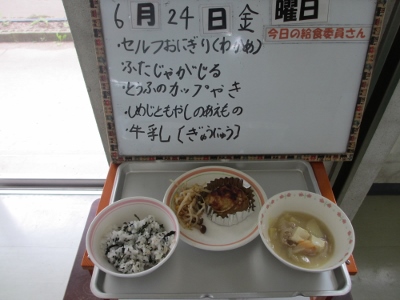 6月24日金曜日
今日の給食委員さん
・セルフおにぎり(わかめ)
・ぶたじゃがじる
・とうふのカップやき
・しめじともやしのあえもの
・牛乳〔ぎゅうにゅう〕